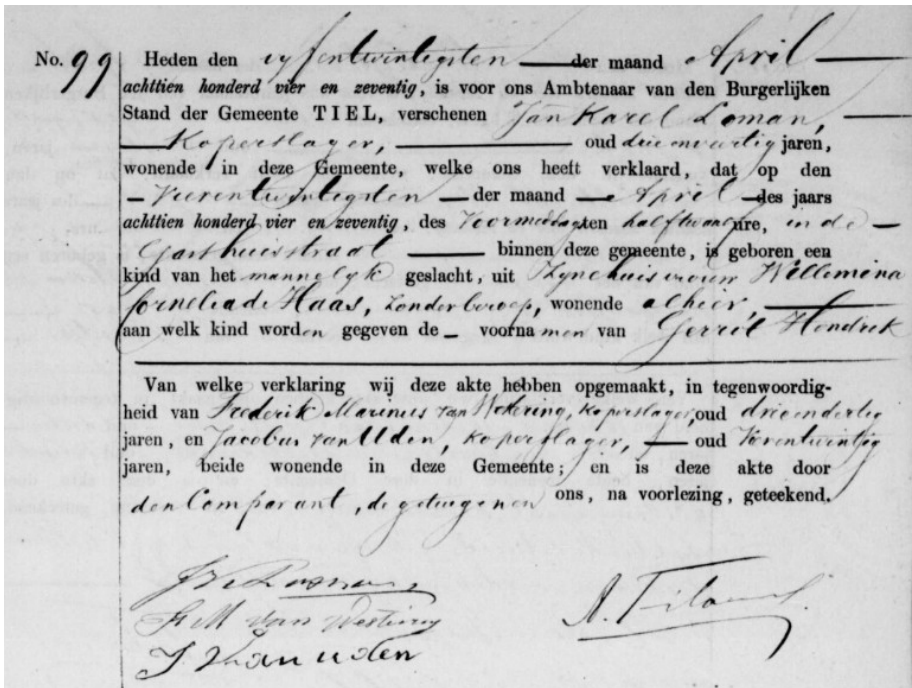 No. 99 Heden den vyfentwintigsten der maand April
achttien honderd vier en zeventig, is voor ons Ambtenaar van den Burgerlijken
Stand der Gemeente TIEL, verschenen Jan Karel Loman,
Koperslager, oud drieenveertig jaren,
wonende in deze Gemeente, welke ons heeft verklaard, dat op den
Vierentwintigsten der maand April des jaars
achttien honderd vier en zeventig, des Voormiddagten half twaalf ure, in de
Gasthuisstraat binnen deze gemeente, is geboren een
kind van het mannelyk geslacht, uit Zyne huisvrouw Willemina
Cornelia de Haas, zonder beroep, wonende alhier,
aan welk kind worden gegeven de voornamen van Gerrit Hendrik
Van welke verklaring wij deze akte hebben opgemaakt, in tegenwoordig-
heid van Frederik Marinus van Wetering, Koperslager, oud drieendertig
jaren, en Jacobus van Uden, Koperslager, oud Vierentwintig
jaren, beide wonende in deze Gemeente; en is deze akte door
den Comparant, de getuigen en ons, na voorlezing, geteekend.
J K Loman
F. M. van Wetering
J. van uden